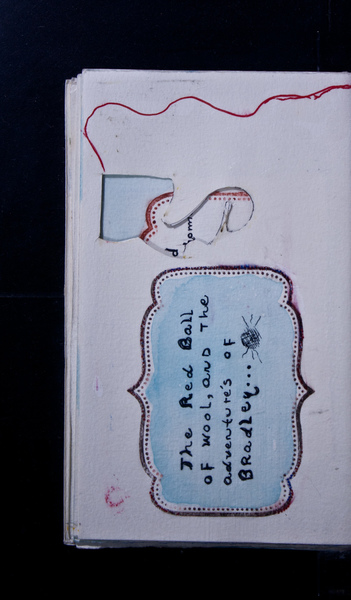 The Red Ball
of wool, and The
adventure's of
Bradley...